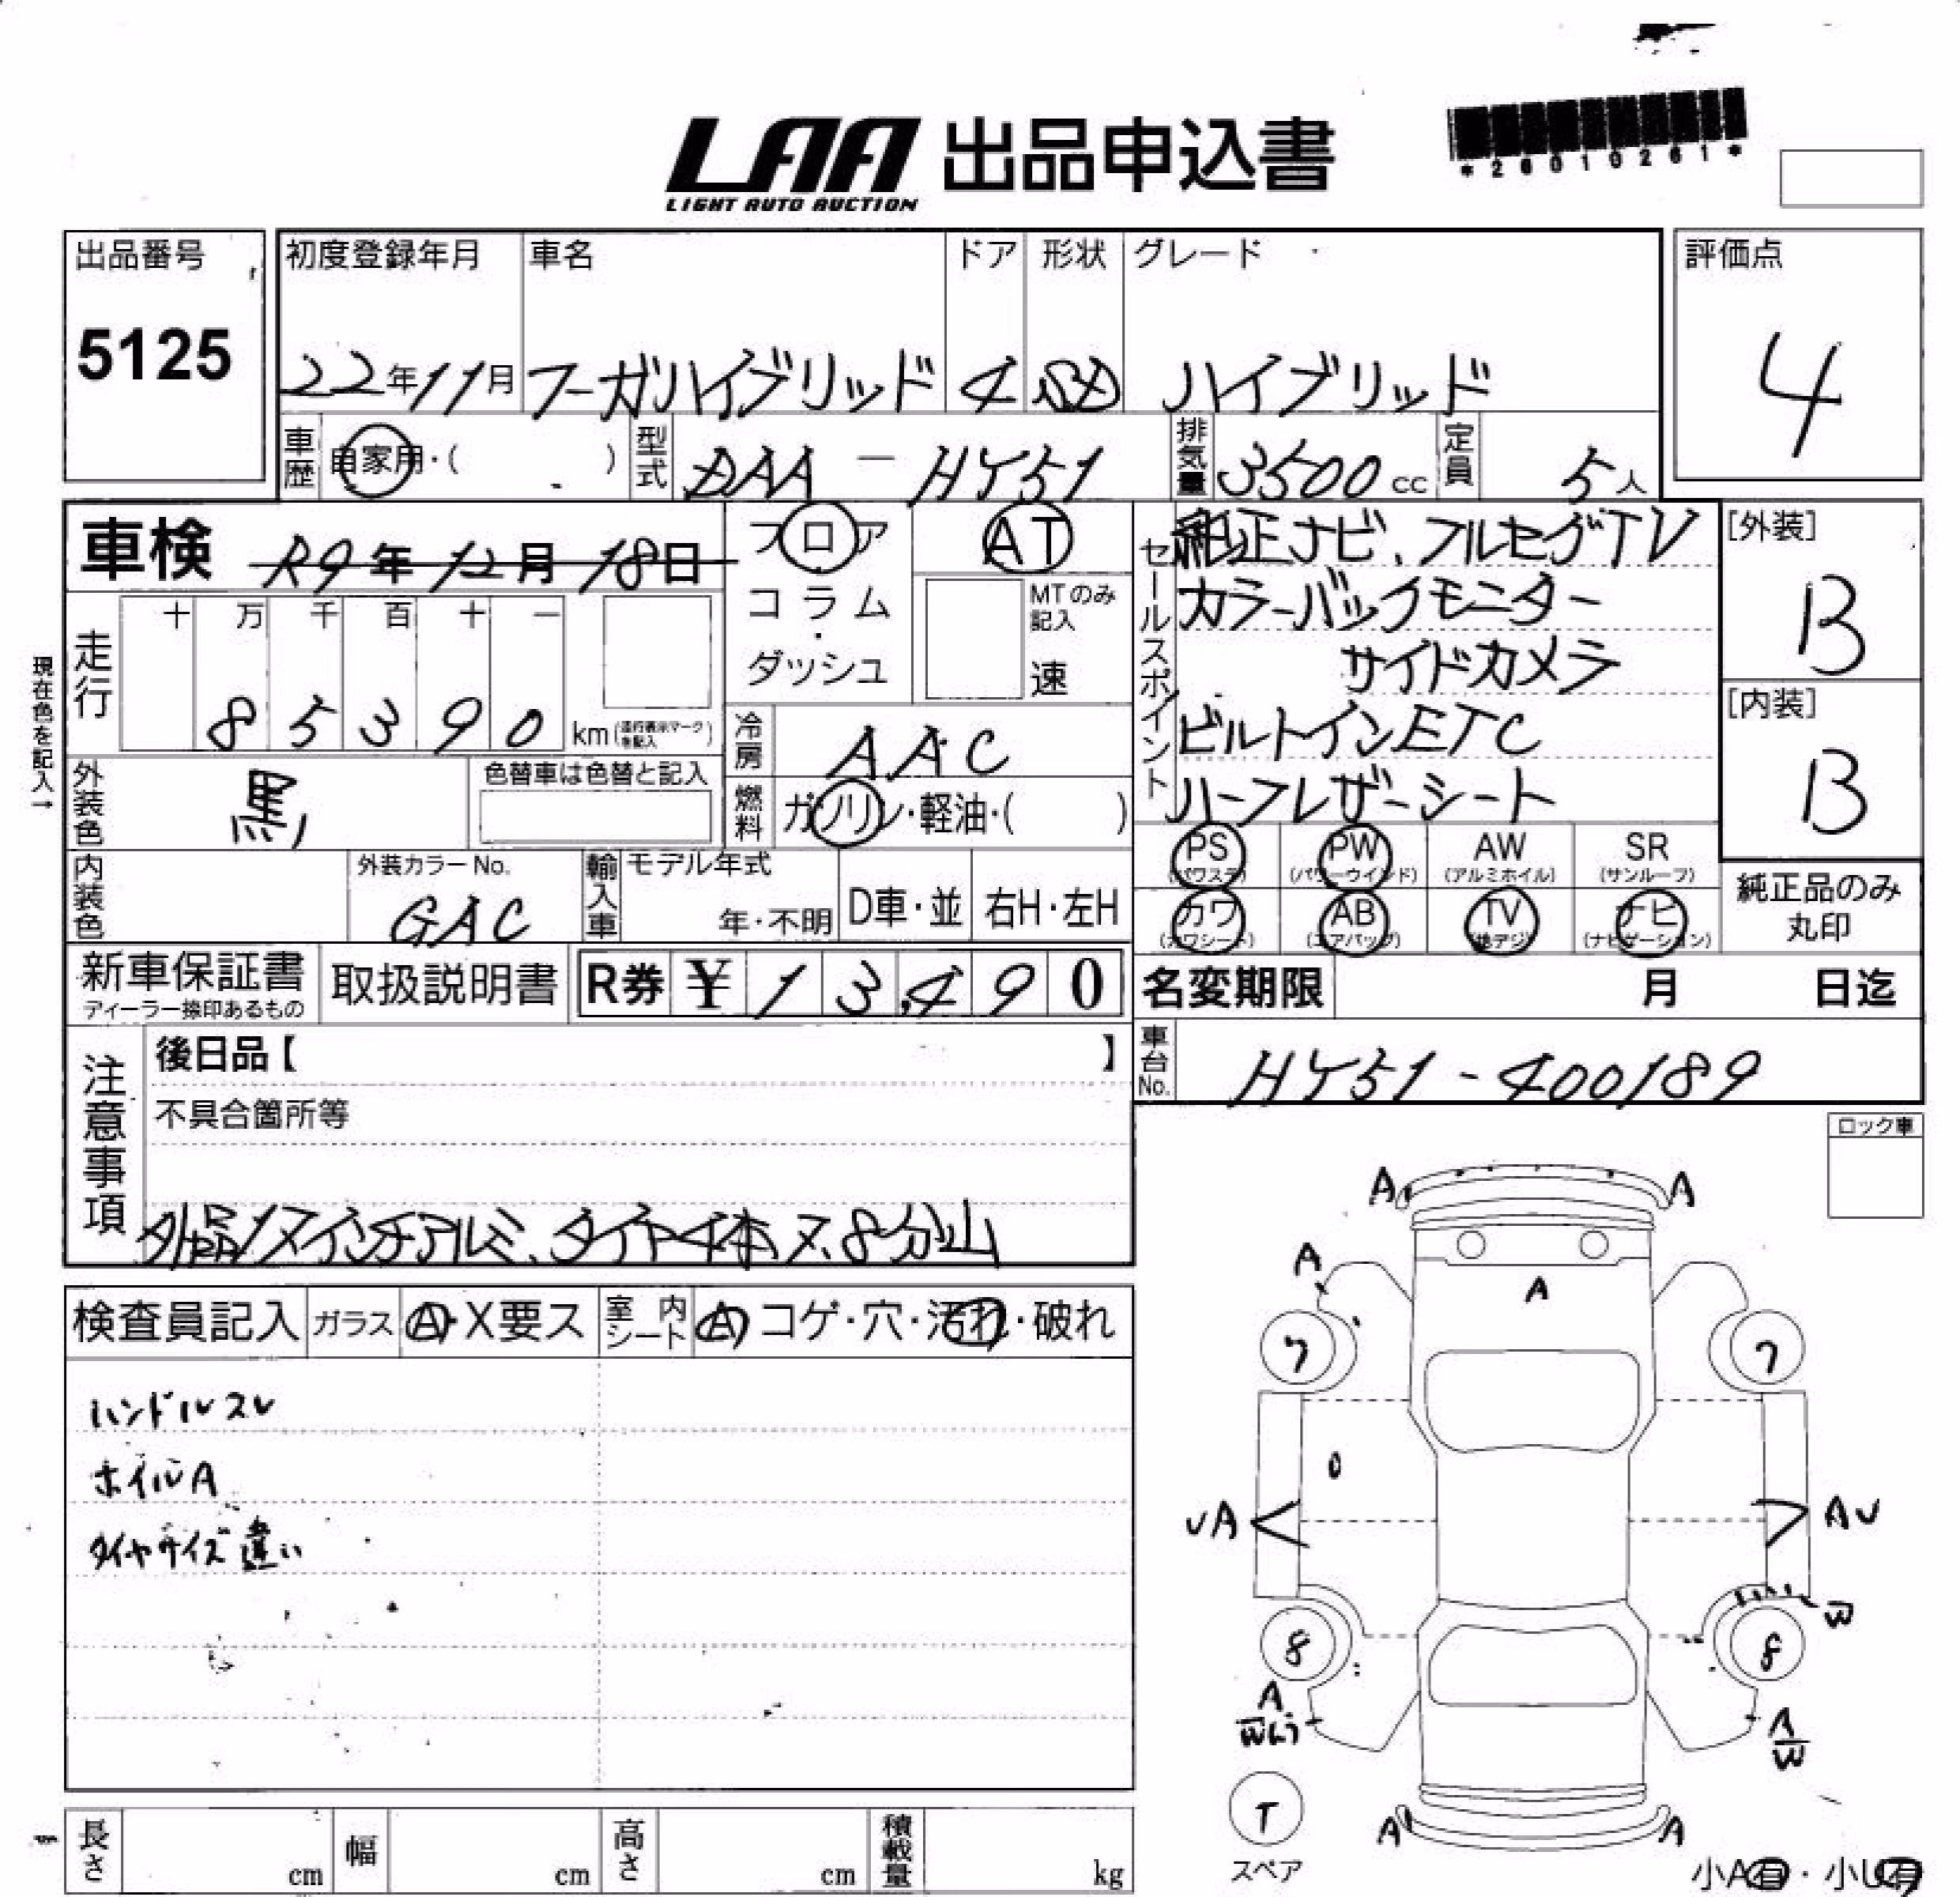 LAA 出品申込書
LIGHT AUTO AUCTION
*26010261*
出品番号
5125
初度登録年月 車名 ドア 形状 グレード
22年11月 フーガハイブリッド 4 SD ハイブリッド
評価点
4
車歴 自家用・( ) 型式 DAA - HY51 排気量 3500cc 定員 5人
車検 R9年12月18日
フロア
コラム
・
ダッシュ
AT
MTのみ
記入
速
現在色を記入→
走行 十 万 千 百 十 一
85390 km (走行表示マークを記入)
冷房 AAC
外装色 黒 色替車は色替と記入
燃料 ガソリン・軽油・( )
内装色 外装カラーNo. GAC
輸入車 モデル年式 年・不明 D車・並 右H・左H
セールスポイント
純正ナビ、フルセグTV
カラーバックモニター
サイドカメラ
ビルトインETC
ハーフレザーシート
[外装]
B
[内装]
B
PS (パワステ) PW (パワーウインド) AW (アルミホイル) SR (サンルーフ)
カワ (カワシート) AB (エアバッグ) TV (地デジ) ナビ (ナビゲーション)
純正品のみ
丸印
新車保証書 ディーラー捺印あるもの 取扱説明書 R券 ¥13,490
名変期限 月 日迄
車台No. HY51-400189
注意事項
後日品【 】
不具合箇所等
社外品19インチアルミ、タイヤ4本ヌ、8分山
ロック車
検査員記入 ガラス A・X要ス 室内シート A コゲ・穴・汚れ・破れ
ハンドルスレ
ホイルA
タイヤサイズ違い
A A
A
A
7 7
UA AU
W
8 8
A
W
A
W
T
スペア
A A
小A有・小U有
長さ cm 幅 cm 高さ cm 積載量 kg